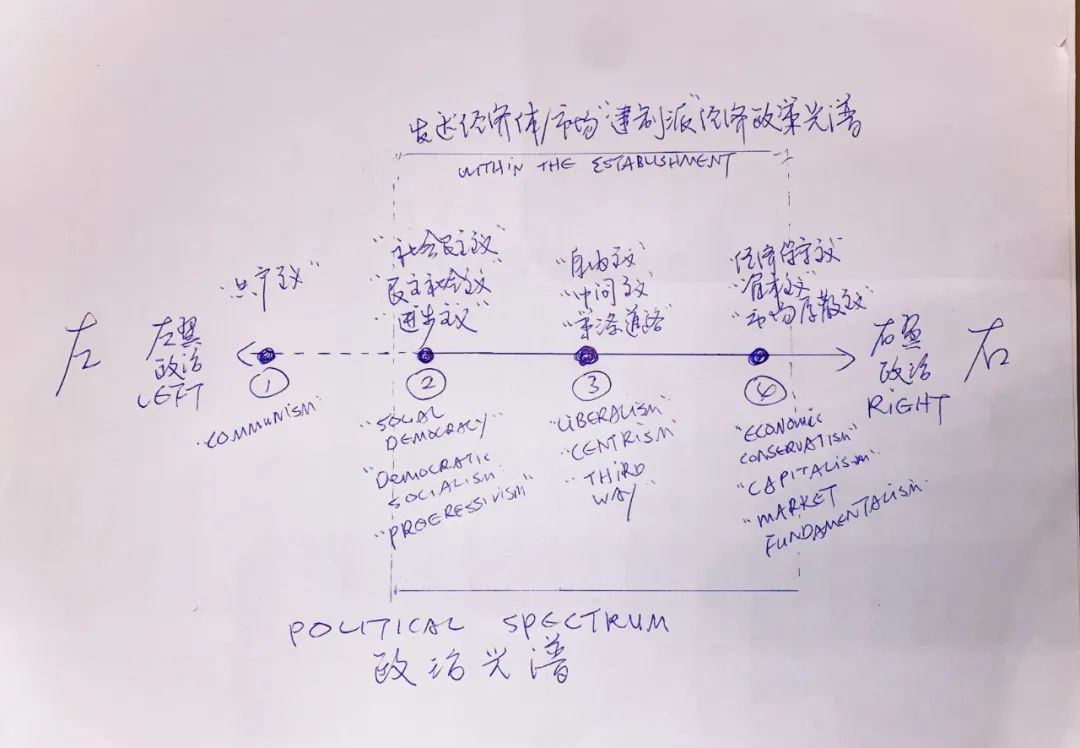 发达经济体/市场"建制派"经济政策光谱
WITHIN THE ESTABLISHMENT
"共产主义"
"社会民主主义"
"民主社会主义"
"进步主义"
"自由主义"
"中间主义"
"第三条道路"
"经济保守主义"
"资本主义"
"市场原教旨主义"
左
左翼
政治
LEFT
右翼
政治
RIGHT
右
①
②
③
④
"COMMUNISM"
"SOCIAL
DEMOCRACY"
"DEMOCRATIC
SOCIALISM"
"PROGRESSIVISM"
"LIBERALISM"
"CENTRISM"
"THIRD
WAY"
"ECONOMIC
CONSERVATISM"
"CAPITALISM"
"MARKET
FUNDAMENTALISM"
POLITICAL SPECTRUM
政治光谱